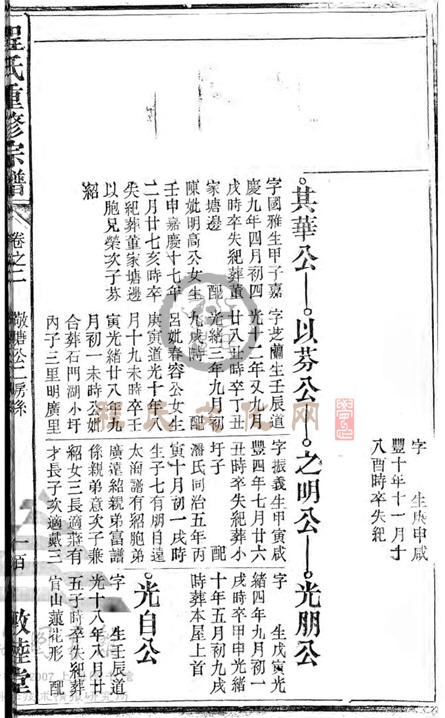 字 生庚申咸
豐十年十一月寸
八酉時卒失紀
其華公
字國雅生甲子嘉
慶九年四月初四
戌時卒失紀葬董
家塘邊 配
陳妣明高公女生
壬申嘉慶十七年
二月廿七亥時卒
失紀葬董家塘邊
以胞兄榮次子芬
紹
以芬公
字芝蘭生壬辰道
光十二年又九月
廿八丑時卒丁丑
光緒三年九月初
九戌時 配
呂妣春容公女生
庚寅道光十年八
月十九未時卒壬
寅光緒廿八年九
月初一未時公妣
合葬石門湖小圩
內子三里明廣里
之明公
字振義生甲寅咸
豐四年七月廿六
丑時卒失紀葬小
圩子 配
潘氏同治五年丙
寅十月初一戌時
生子七有朋自遠
太淌譜有紹胞弟
廣遠紹親弟富譜
係親弟意次子兼
紹女三長適蔣有
才長子次適戴三
光朋公
字 生戊寅光
緒四年九月初一
戌時卒甲申光緒
十年五月初九戌
時葬本屋上首
光自公
字 生壬辰道
光十八年八月廿
五子時卒失紀葬
官山蓮花形 配
程氏重修宗譜
卷之二
敬塘公二房系
一百
敦睦堂